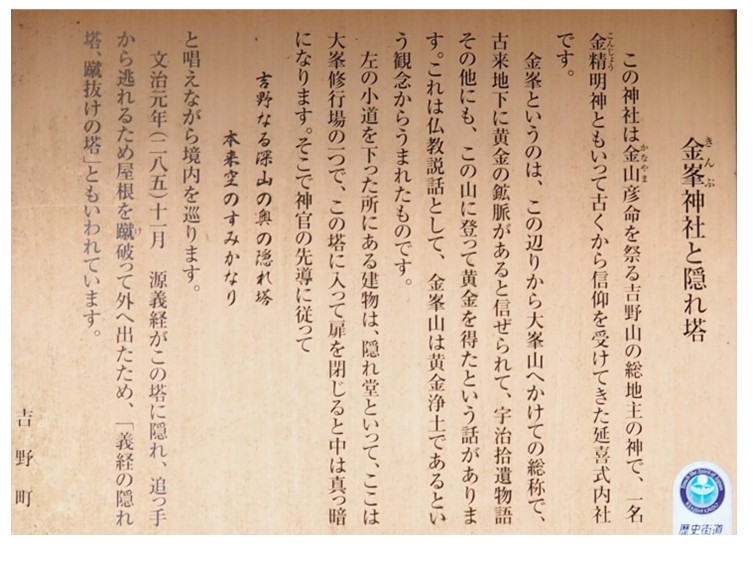 金峯神社と隠れ塔
きんぷ
この神社は金山彦命を祭る吉野山の総地主の神で、一名
かなやま
金精明神ともいって古くから信仰を受けてきた延喜式内社
こんじょう
です。
金峯というのは、この辺りから大峯山へかけての総称で、
古来地下に黄金の鉱脈があると信ぜられて、宇治拾遺物語
その他にも、この山に登って黄金を得たという話がありま
す。これは仏教説話として、金峯山は黄金浄土であるとい
う観念からうまれたものです。
左の小道を下った所にある建物は、隠れ堂といって、ここは
大峯修行場の一つで、この塔に入って扉を閉じると中は真っ暗
になります。そこで神官の先導に従って
吉野なる深山の奥の隠れ塔
本来空のすみかなり
と唱えながら境内を巡ります。
文治元年(一一八五)十一月 源義経がこの塔に隠れ、追っ手
から逃れるため屋根を蹴破って外へ出たため、「義経の隠れ
け
塔、蹴抜けの塔」ともいわれています。
吉野町
歴史街道